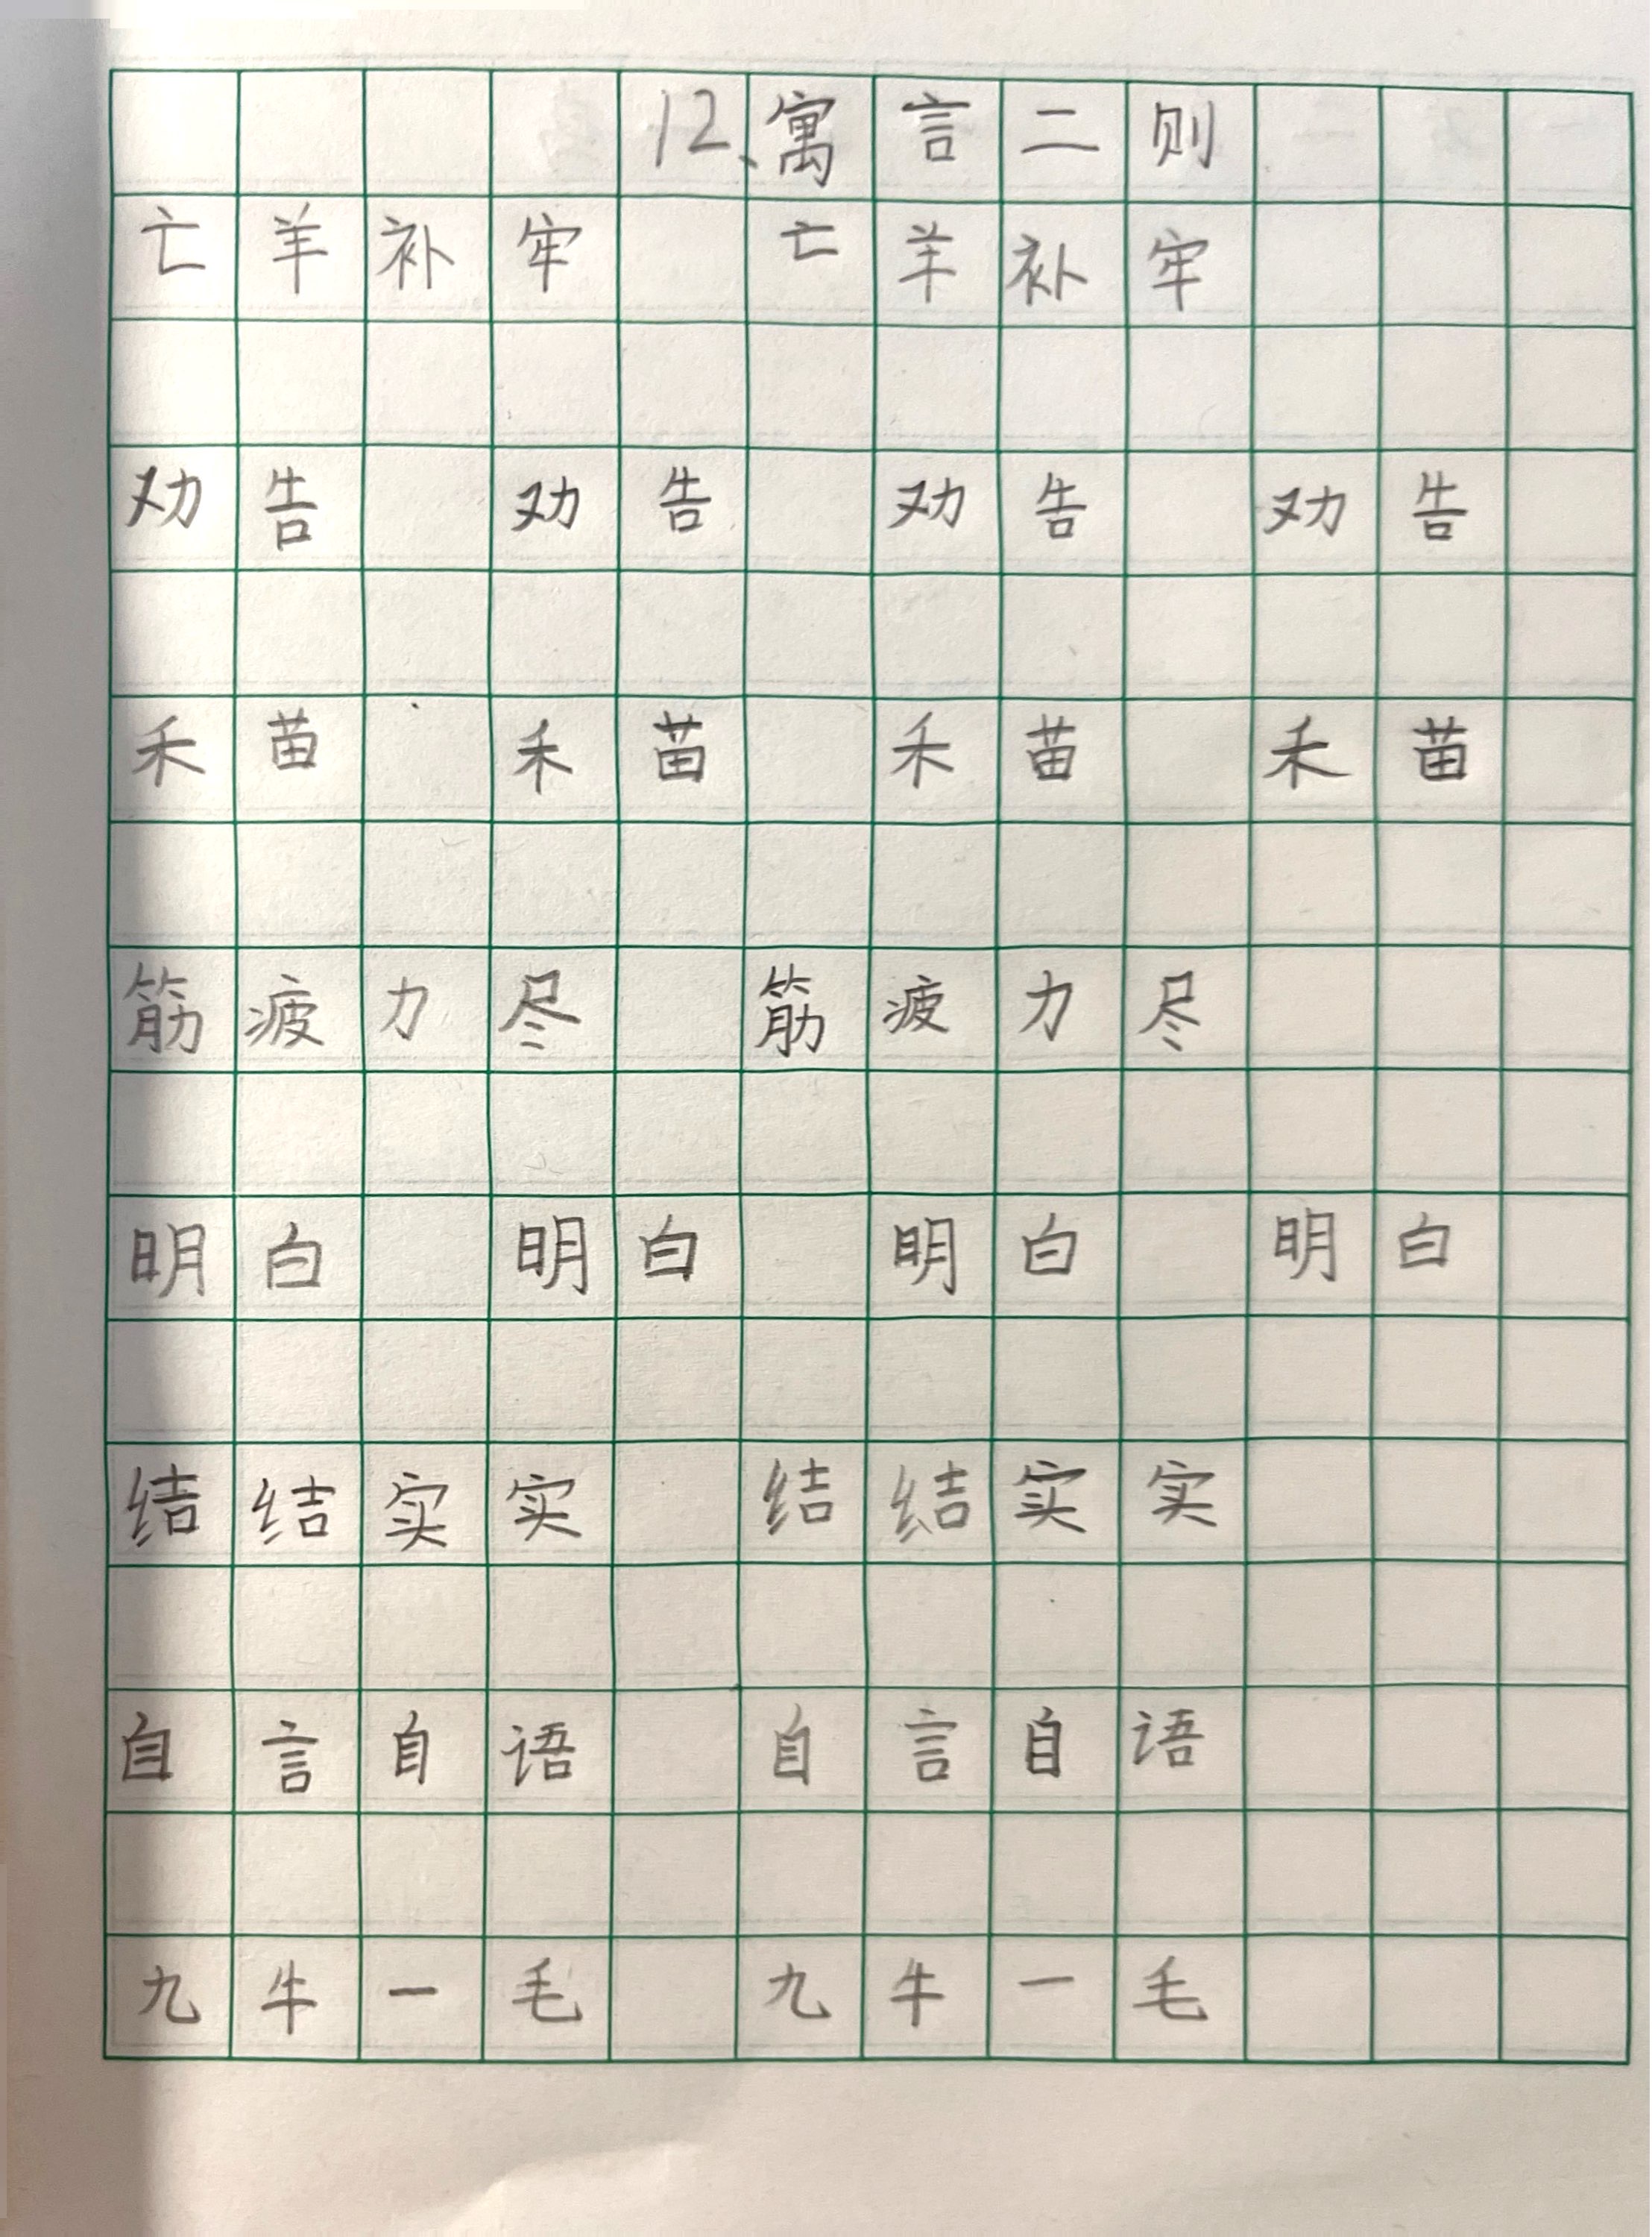 12、寓言二则
亡羊补牢 亡羊补牢
劝告 劝告 劝告 劝告
禾苗 禾苗 禾苗 禾苗
筋疲力尽 筋疲力尽
明白 明白 明白 明白
结结实实 结结实实
自言自语 自言自语
九牛一毛 九牛一毛